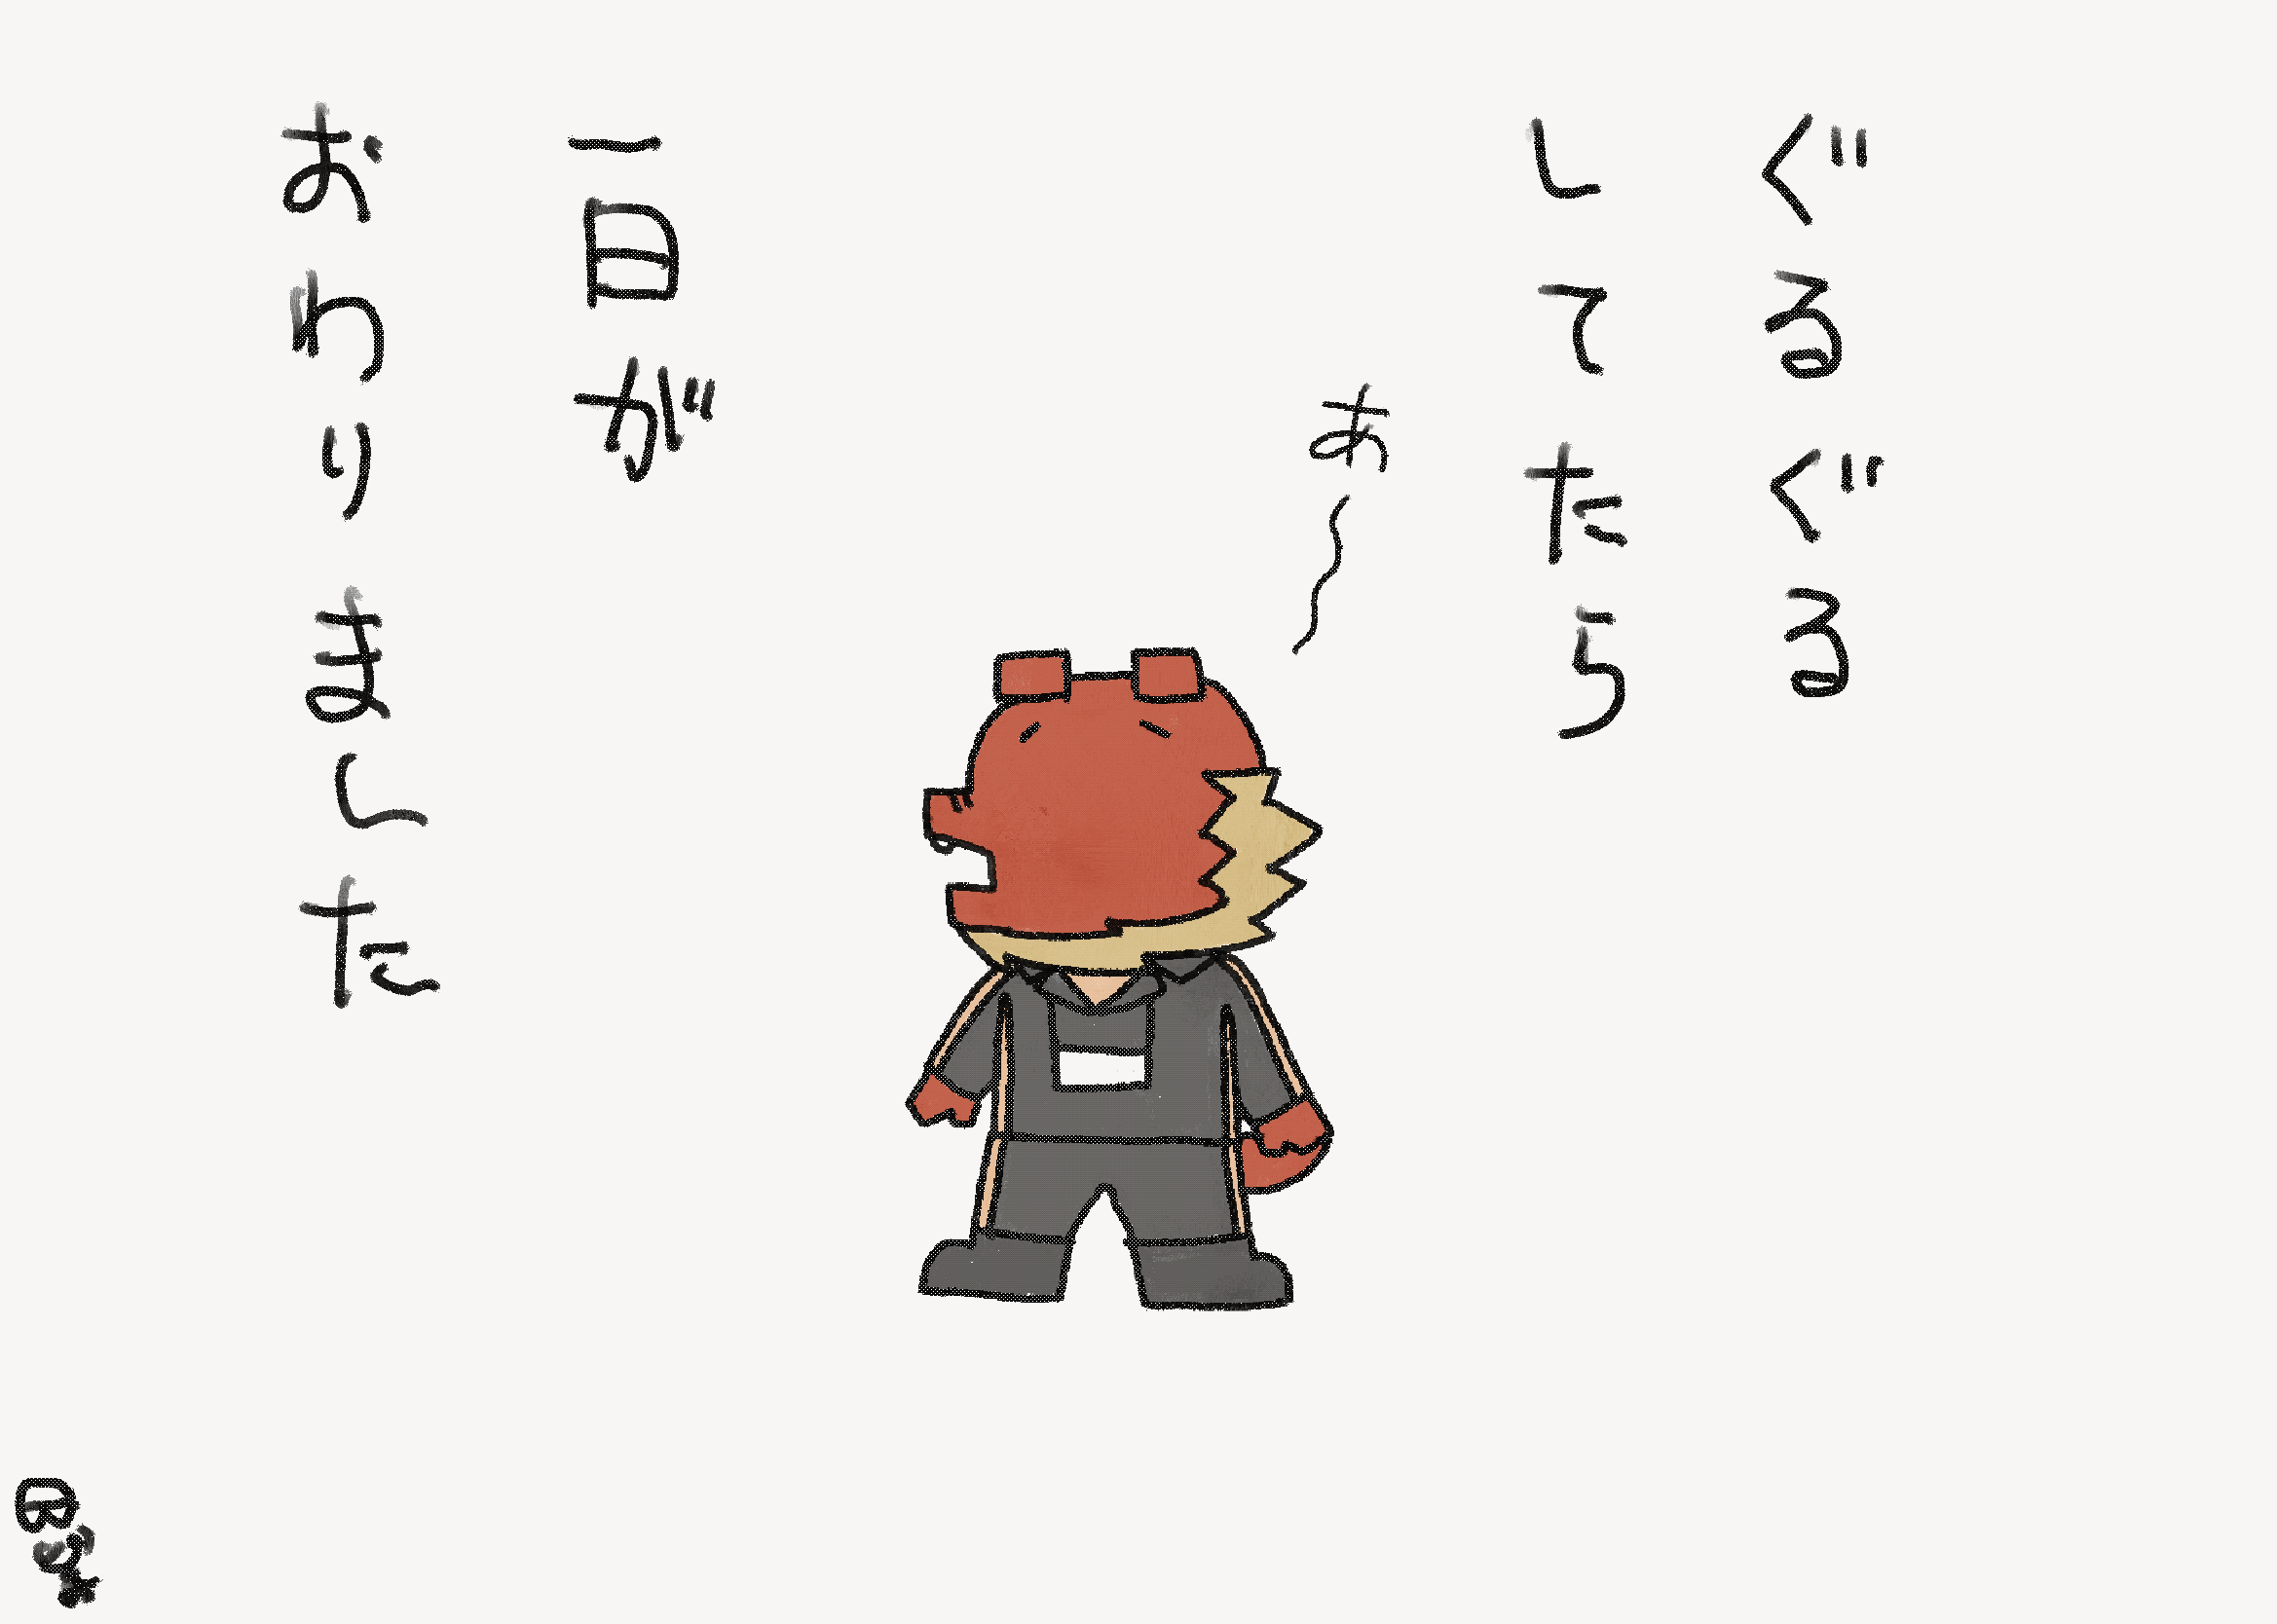 ぐるぐる
してたら
あ〜
一日が
おわりました